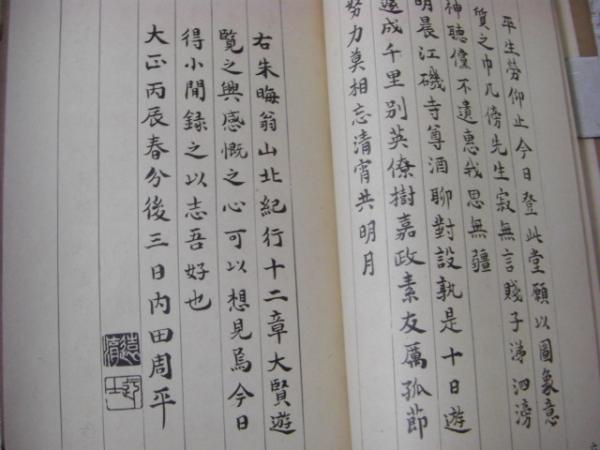 平生勞仰止今日登此堂願以圖象意
質之巾几傍先生寂無言賤子涕泗滂
神聽儻不遺惠我思無疆
明晨江磯寺尊酒聊對設孰是十日遊
遽成千里別英僚樹嘉政素友厲孤節
努力莫相忘清宵共明月
右朱晦翁山北紀行十二章大賢遊
覽之興感慨之心可以想見焉今日
得小閒錄之以志吾好也
大正丙辰春分後三日內田周平